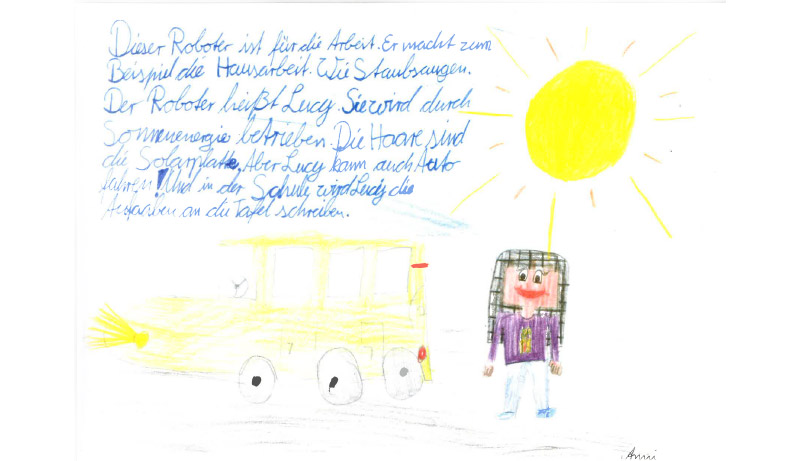 Dieser Roboter ist für die Arbeit. Er macht zum
Beispiel die Hausarbeit. Wie Staubsaugen.
Der Roboter heißt Lucy. Sie wird durch
Sonnenenergie betrieben. Die Haare sind
die Solarplatte. Aber Lucy kann auch Auto
fahren! Und in der Schule wird Lucy die
Aufgaben an die Tafel schreiben.
7
7
Anni